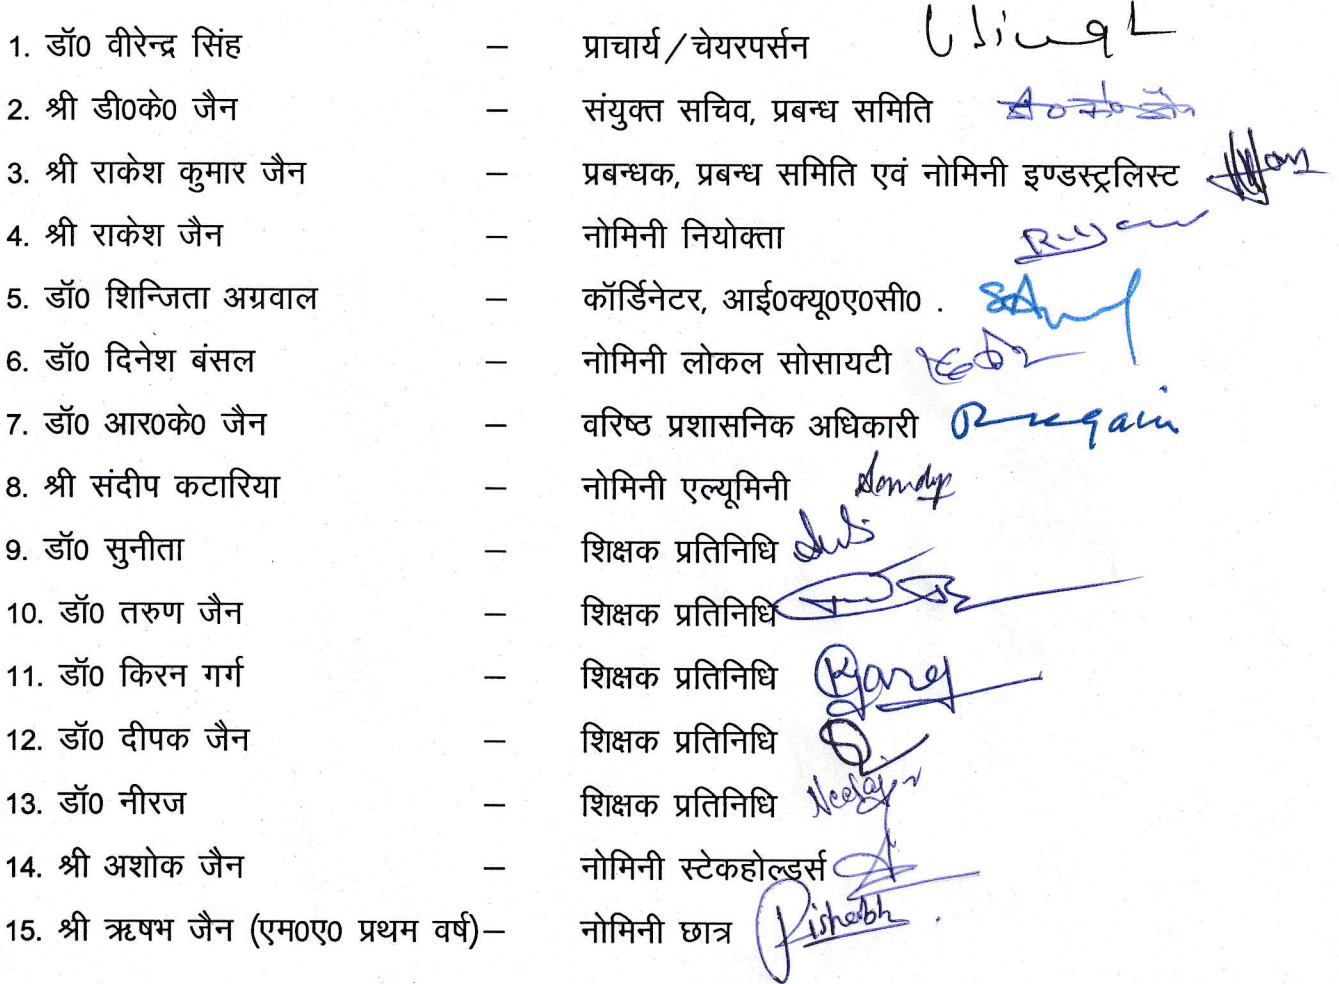 1. डॉ0 वीरेन्द्र सिंह – प्राचार्य/चेयरपर्सन
2. श्री डी0के0 जैन – संयुक्त सचिव, प्रबन्ध समिति
3. श्री राकेश कुमार जैन – प्रबन्धक, प्रबन्ध समिति एवं नोमिनी इण्डस्ट्रलिस्ट
4. श्री राकेश जैन – नोमिनी नियोक्ता
5. डॉ0 शिन्जिता अग्रवाल – कॉर्डिनेटर, आई0क्यू0ए0सी0 .
6. डॉ0 दिनेश बंसल – नोमिनी लोकल सोसायटी
7. डॉ0 आर0के0 जैन – वरिष्ठ प्रशासनिक अधिकारी
8. श्री संदीप कटारिया – नोमिनी एल्यूमिनी
9. डॉ0 सुनीता – शिक्षक प्रतिनिधि
10. डॉ0 तरुण जैन – शिक्षक प्रतिनिधि
11. डॉ0 किरन गर्ग – शिक्षक प्रतिनिधि Kgarg
12. डॉ0 दीपक जैन – शिक्षक प्रतिनिधि
13. डॉ0 नीरज – शिक्षक प्रतिनिधि
14. श्री अशोक जैन – नोमिनी स्टेकहोल्डर्स
15. श्री ऋषभ जैन (एम0ए0 प्रथम वर्ष)– नोमिनी छात्र Rishabh